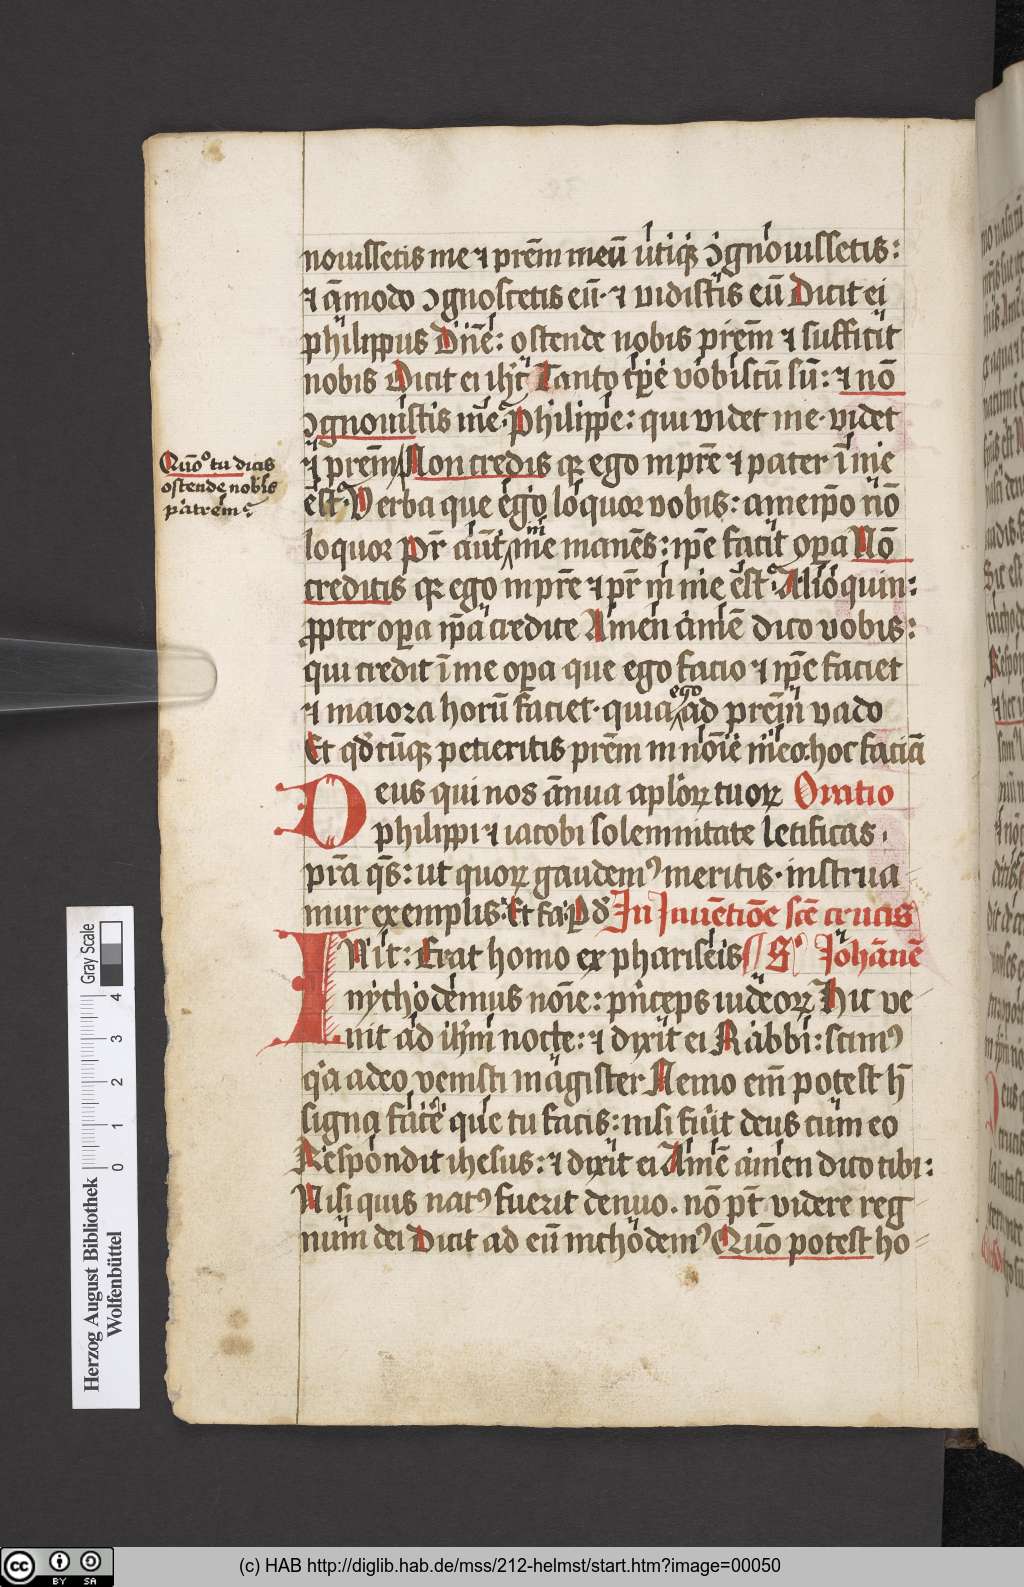 nouissetis me ⁊ prēm meū utiqꝫ ꝯgnouissetis:
⁊ āmodo ꝯgnoscetis eū· ⁊ vidistis eū Dicit ei
philippus Dn̄e: ostende nobis prēm ⁊ sufficit
nobis Dicit ei ihꝰ Tanto tꝑe vobiscū sū: ⁊ nō
ꝯgnouistis me Philippe: qui videt me· videt
⁊ prēm Non credis qꝛ ego in prē ⁊ pater ī me
est Verba que ego loquor vobis: a meip̄o nō
loquor Pr̄ aūt in me manēs: ip̄e facit oꝑa Nō
creditis qꝛ ego in prē ⁊ pr̄ in me est Alioquin:
ꝓpter oꝑa ip̄a credite Amen amē dico vobis:
qui credit ī me oꝑa que ego facio ⁊ ip̄e faciet
⁊ maiora horū faciet· quia ego ad prēm vado
Et qd̄cūqꝫ petieritis prēm in noīe meo: hoc faciā
Quō tu dicis
ostende nobis
patrem
Deus qui nos ānua apl̄oꝝ tuoꝝ Oratio
philippi ⁊ iacobi solemnitate letificas
pr̄a qs̄: ut quoꝝ gaudemꝰ meritis· instrua
mur exemplis: Et fa· P d̄ In Inuētiōe scē crucis
IN it: Erat homo ex phariseis S Johānē
nychodemus noīe: pn̄ceps iudeoꝝ Hic ve
nit ad ihm̄ nocte: ⁊ dixit ei Rabbi: scimꝰ
qa a deo venisti magister Nemo em̄ potest h̄
signa facē que tu facis: nisi fuīt deus cum eo
Respondit ihesus: ⁊ dixit ei Amē amen dico tibi:
Nisi quis natꝰ fuerit denuo· nō pt̄ videre reg
num dei Dicit ad eū nichodemꝰ Quō potest ho
Herzog August Bibliothek
Wolfenbüttel
Gray Scale
0 1 2 3 4
cc BY SA
(c) HAB http://diglib.hab.de/mss/212-helmst/start.htm?image=00050